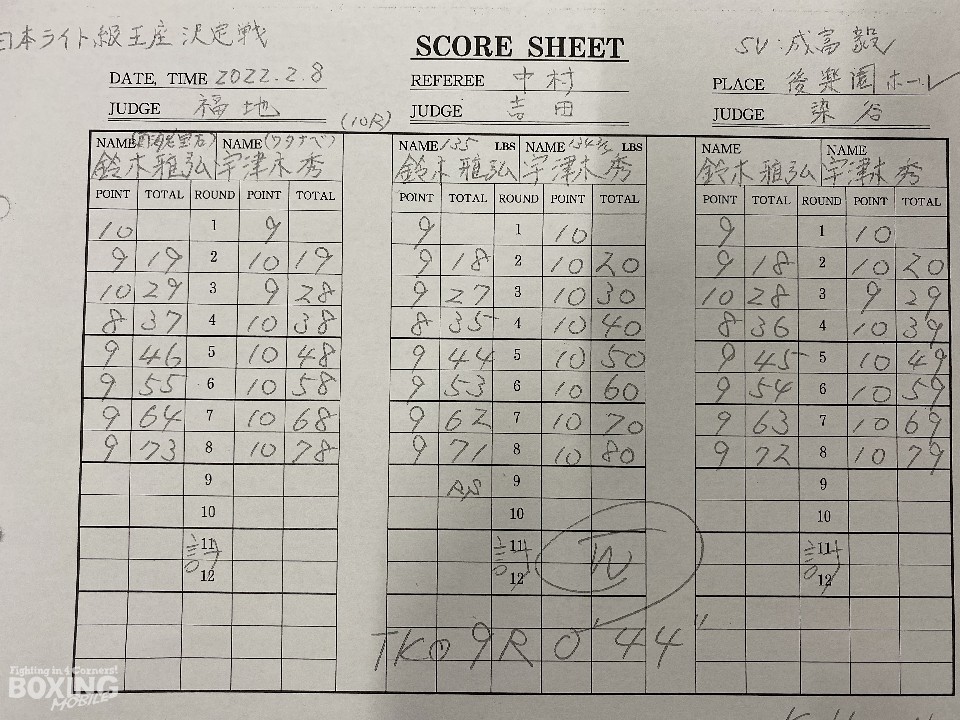 日本ライト級王座決定戦
SCORE SHEET
SV:成富毅
DATE, TIME 2022.2.8 REFEREE 中村 PLACE 後楽園ホール
JUDGE 福地 JUDGE 吉田 JUDGE 染谷
(10R)
NAME NAME (ワタナベ) NAME 135 LBS NAME LBS NAME NAME
鈴木雅弘 宇津木秀 鈴木雅弘 宇津木秀 鈴木雅弘 宇津木秀
POINT TOTAL ROUND POINT TOTAL POINT TOTAL ROUND POINT TOTAL POINT TOTAL ROUND POINT TOTAL
10 1 9 9 1 10 9 1 10
9 19 2 10 19 9 18 2 10 20 9 18 2 10 20
10 29 3 9 28 9 27 3 10 30 10 28 3 9 29
8 37 4 10 38 8 35 4 10 40 8 36 4 10 39
9 46 5 10 48 9 44 5 10 50 9 45 5 10 49
9 55 6 10 58 9 53 6 10 60 9 54 6 10 59
9 64 7 10 68 9 62 7 10 70 9 63 7 10 69
9 73 8 10 78 9 71 8 10 80 9 72 8 10 79
9 9 9
10 10 10
11 11 W 11
12 12 12
TKO 9R 0'44"
Fighting in 4 Corners!
BOXING
MOBILE